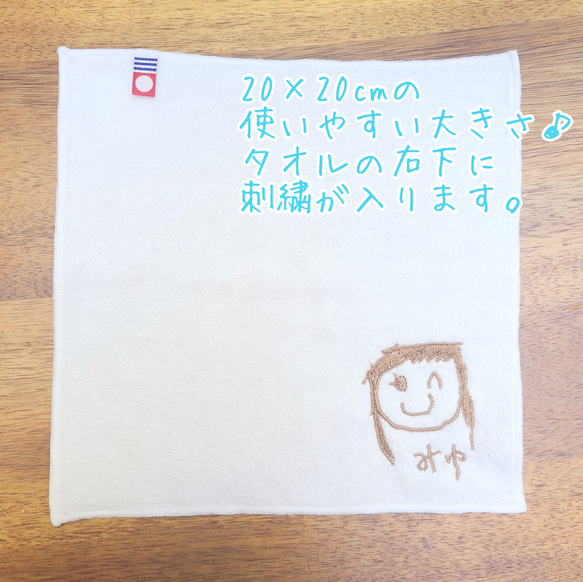 20×20cmの
使いやすい大きさ♪
タオルの右下に
刺繍が入ります。
みゆ